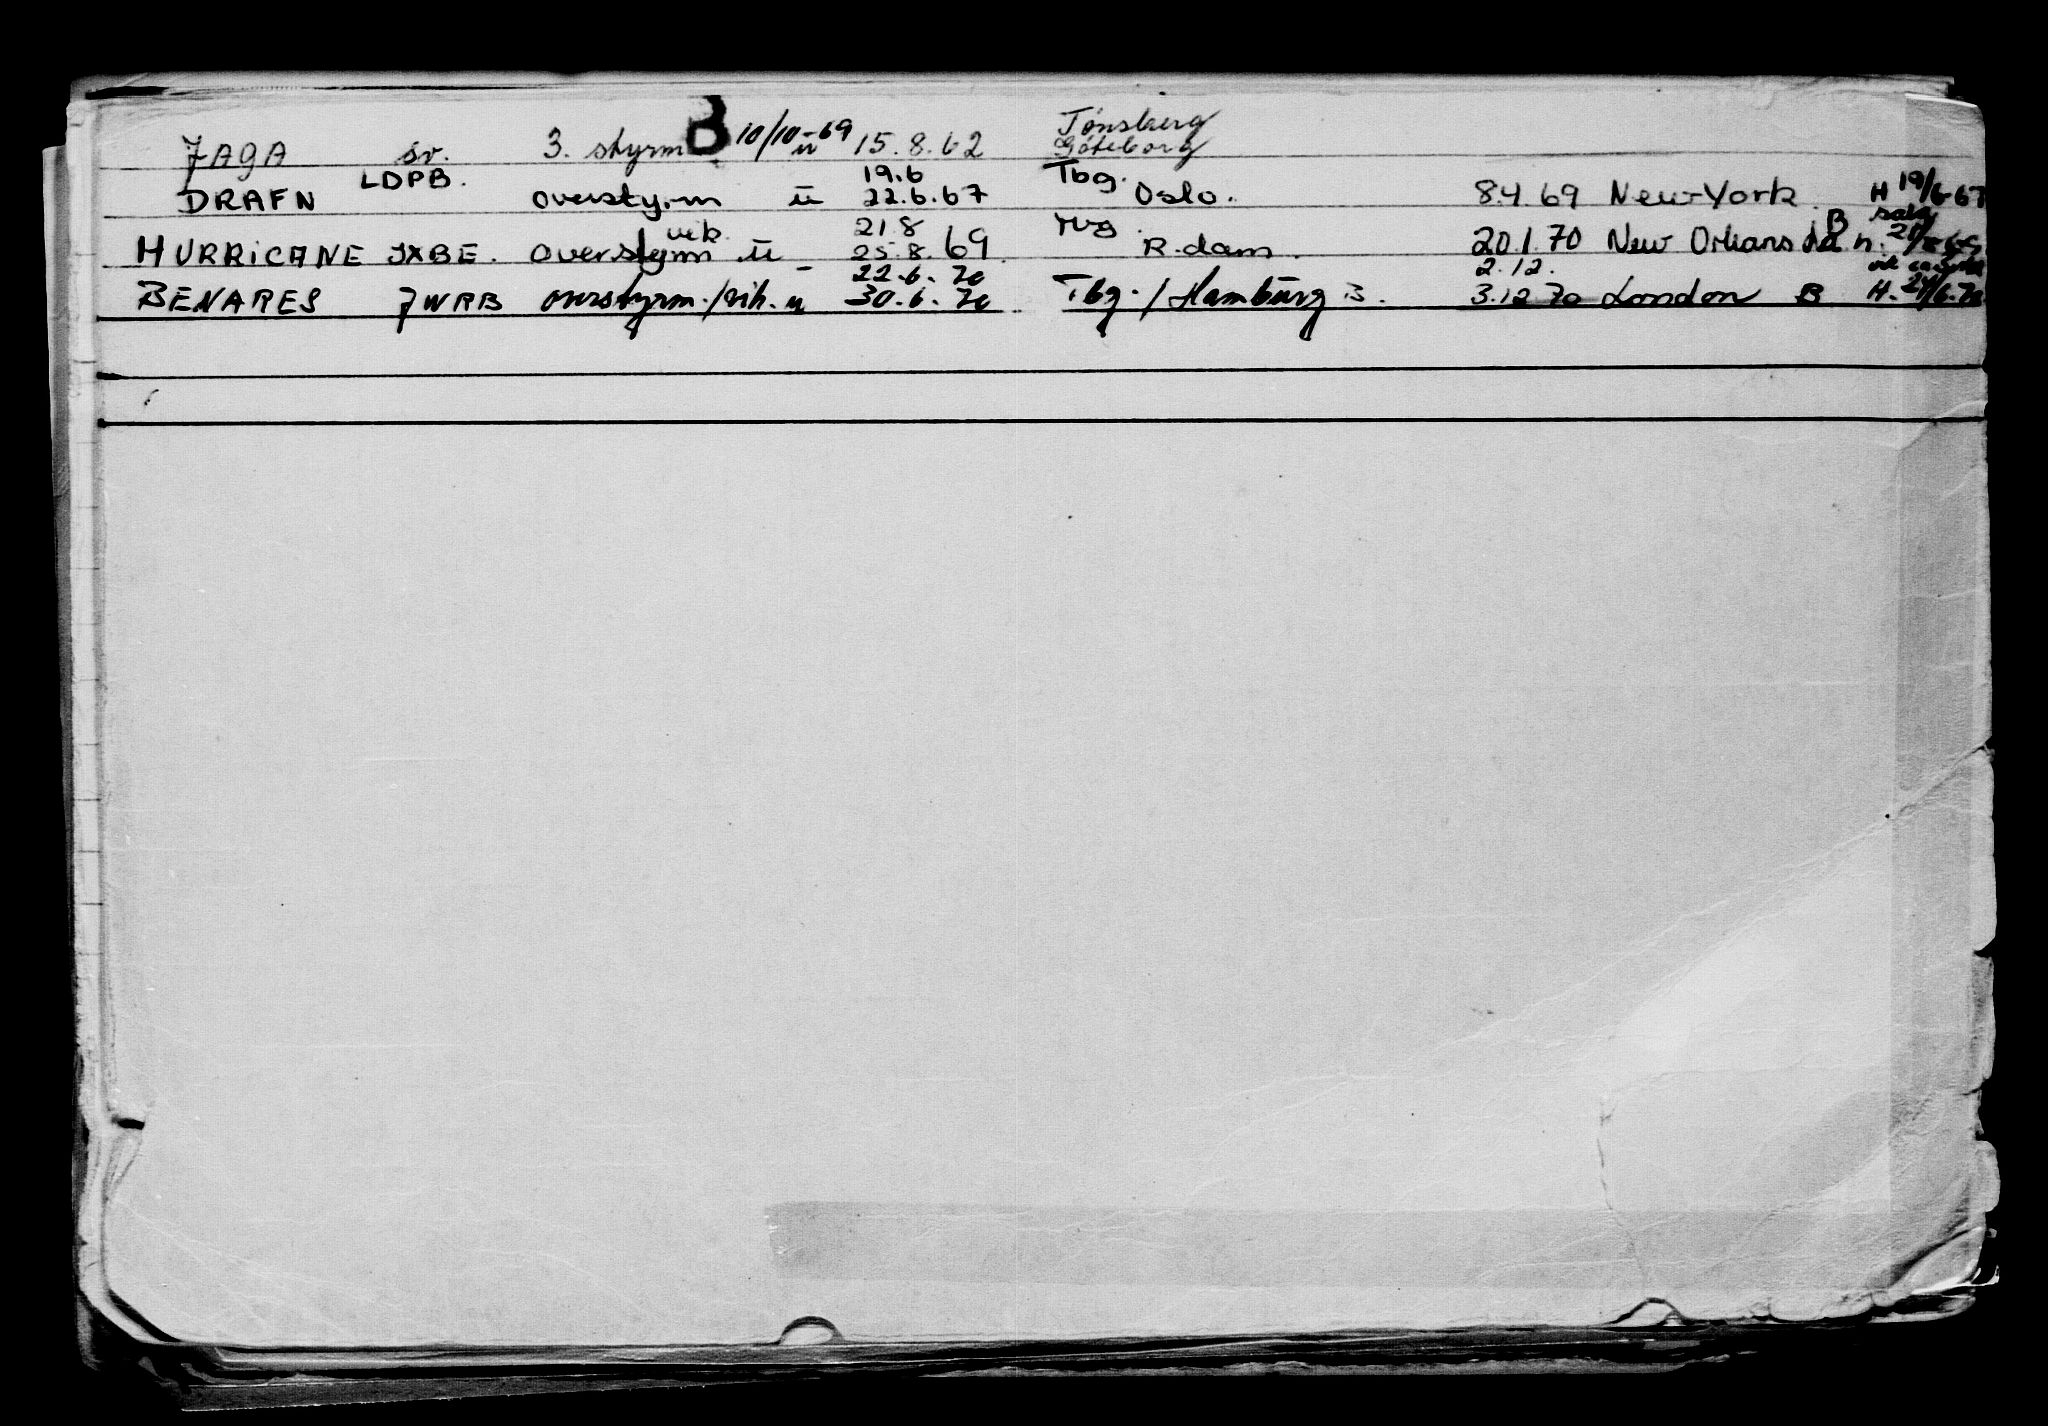 JAGA sv. 3. styrm B 10/10-69 u 15.8.62 Tønsberg Göteborg
DRAFN LDPB. overstyrm u 19.6 22.6.67 Tbg. Oslo. 8.4.69 New-York H 19/6-67
HURRICANE JXBE. overstyrm vik. u 21.8 25.8.69 R-dam. 20.1.70 New Orleans B
BENARES JWRB overstyrm./vik. u 22.6.70 30.6.70 Tbg./Hamburg B. 2.12. 3.12.70 London B H. 6.70